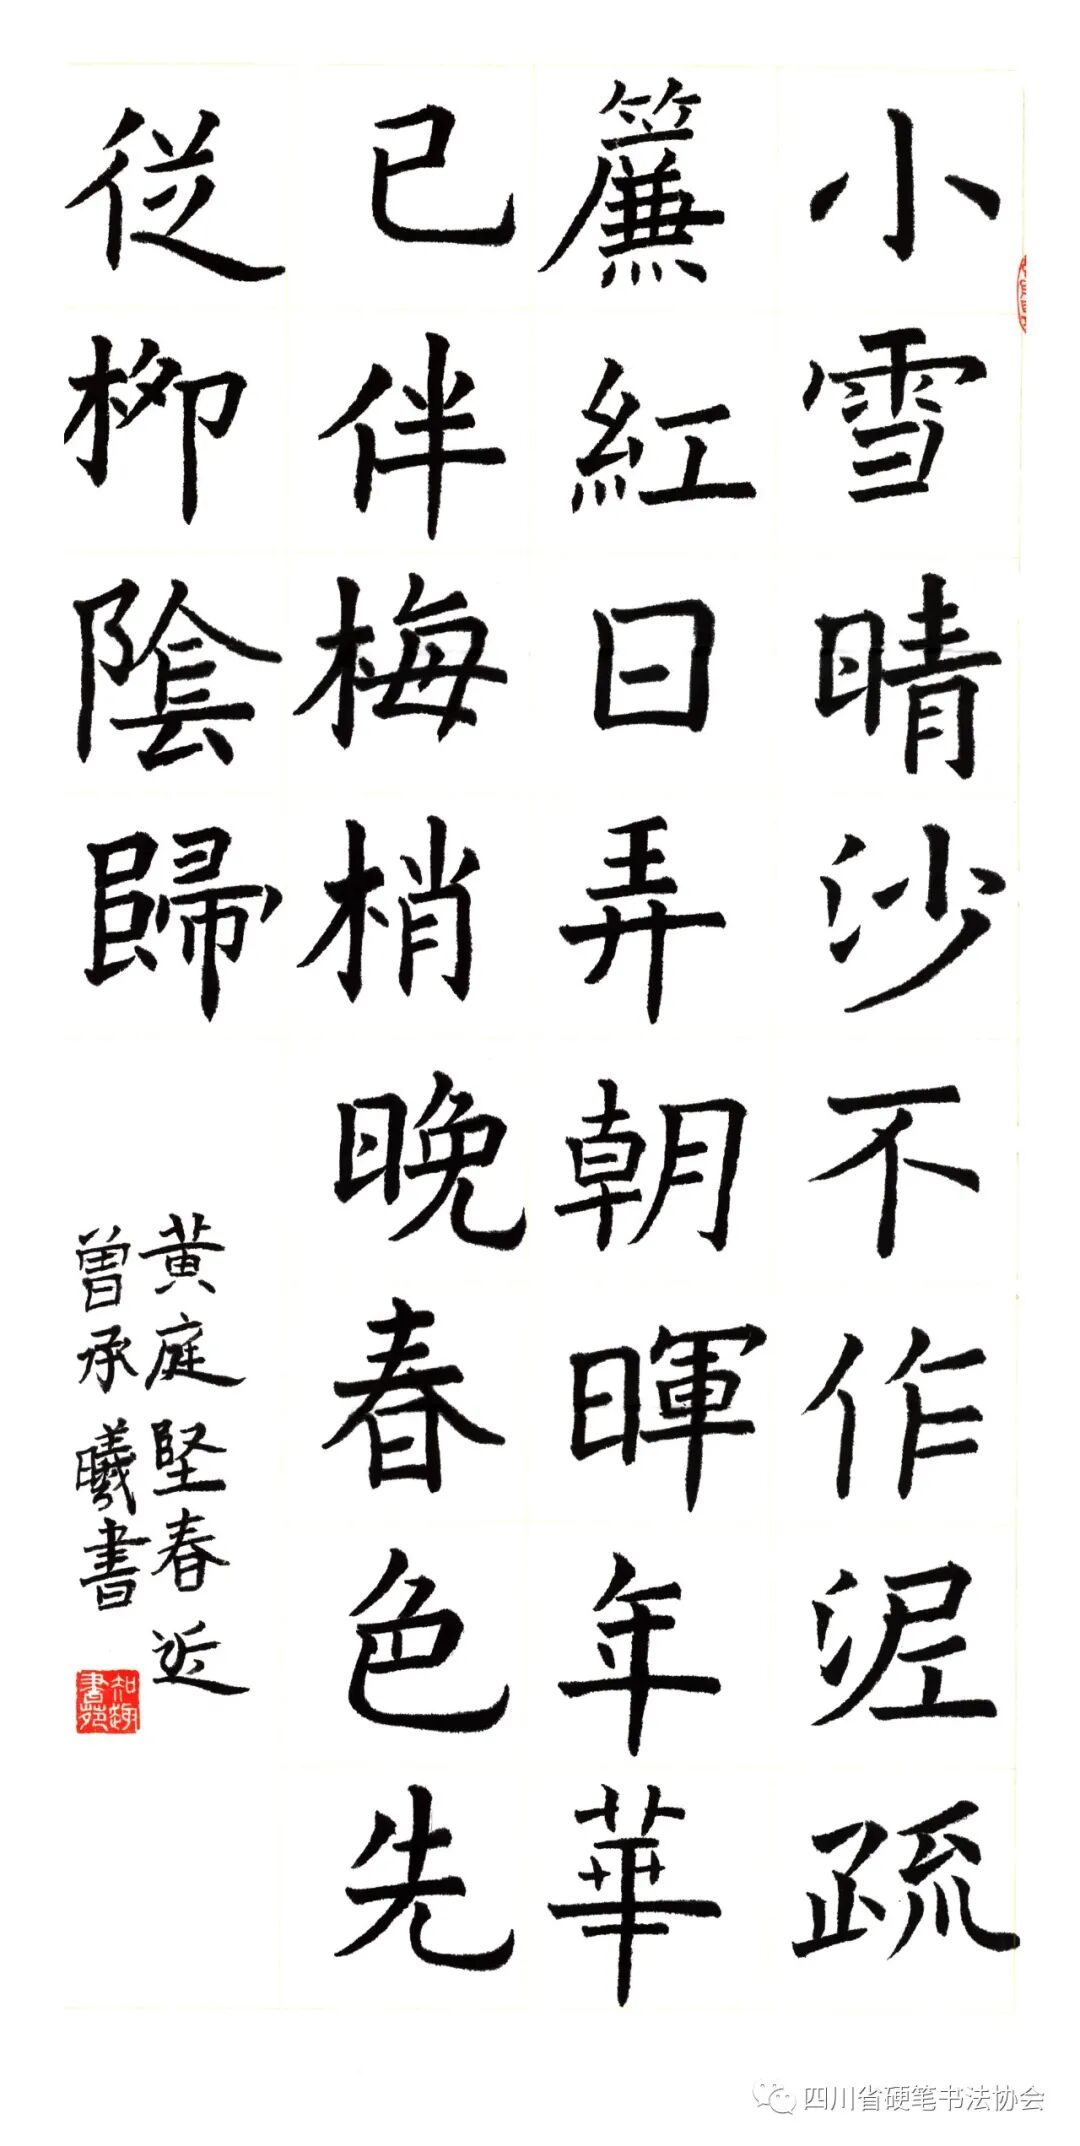 小雪晴沙不作泥疏
簾紅日弄朝暉年華
已伴梅梢晚春色先
從柳陰歸
黃庭堅春近
曾承曦書
知趣書苑
四川省硬笔书法协会